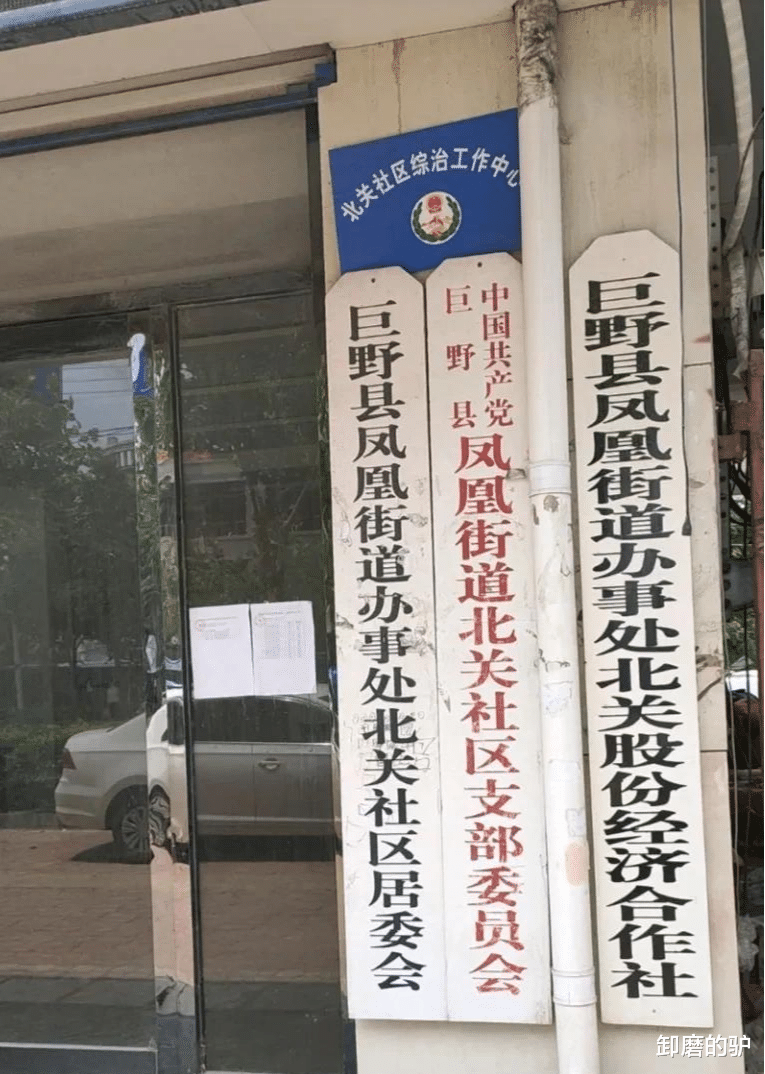 北关社区综治工作中心
巨野县凤凰街道办事处北关社区居委会
中国共产党
巨野县
凤凰街道北关社区支部委员会
巨野县凤凰街道办事处北关股份经济合作社
卸磨的驴